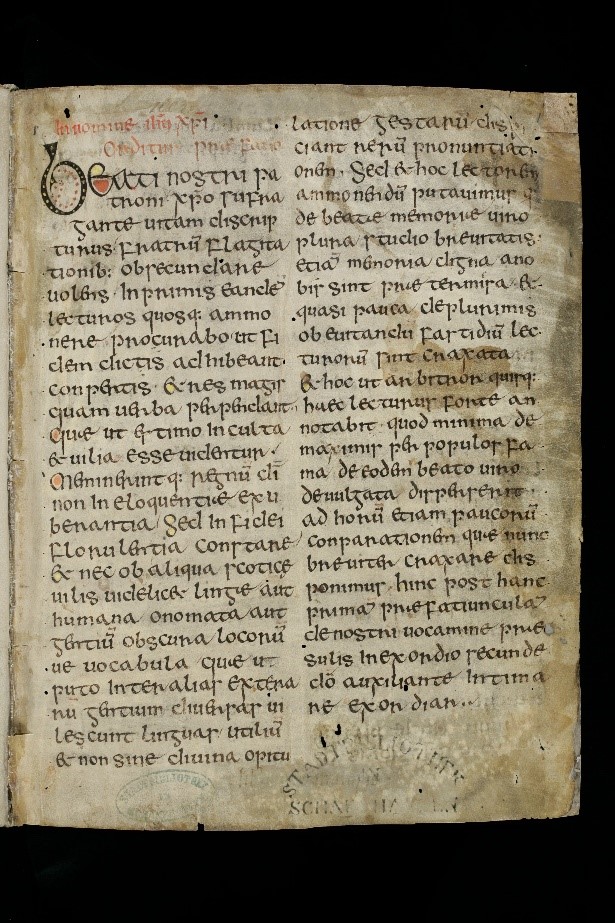 In nomine ihu xpi
Orditur praefatio
Beati nostri pa
troni xpo suffra
gante uitam discrip
turus fratrū flagita
tionib; obsecundare
uolens· In primis eandē
lecturos quosq; ammo
nere procurabo ut fi
dem dictis adhibeant·
conpertis· & res magis
quam uerba perpendant·
Quae ut estimo inculta
& uilia esse uidentur·
Meminerintq; regnū dī
non in eloquentiae exu
berantia Sed in fidei
florulentia constare
& nec ob aliqua scoticę
uilis uidelicet linge aut
humana onomata aut
gentiū obscura locorū
ue uocabula quae ut
puto inter alias extera
rū gentium diuersas ui
lescunt linguas utiliū
& non sine diuina opitu
latione gestarū dis
ciant rerū pronuntiati
onem· Sed & hoc lectorem
ammonendū putauimus q
de beatae memoriae uiro
plura studio breuitatis·
etiā memoria digna a no
bis sint praetermisa &
quasi pauca de plurimis
ob euitandū fastidiū lec
turorū sint craxata
& hoc ut arbitror quisq;
haec lecturus forte an
notabit· quod minima de
maximis per populos fa
ma· de eodem beato uiro
deuulgata disperserit
ad horū etiam paucorū
conparationem quae nunc
breuiter craxare dis
ponimus· hinc post hanc
primā praefatiunculā
de nostri uocamine prae
sulis in exordio secundae
dō auxiliante intima
re exordiar··
STADTBIBLIOTHEK
STADTBIBLIOTHEK
SCHAFFHAUSEN